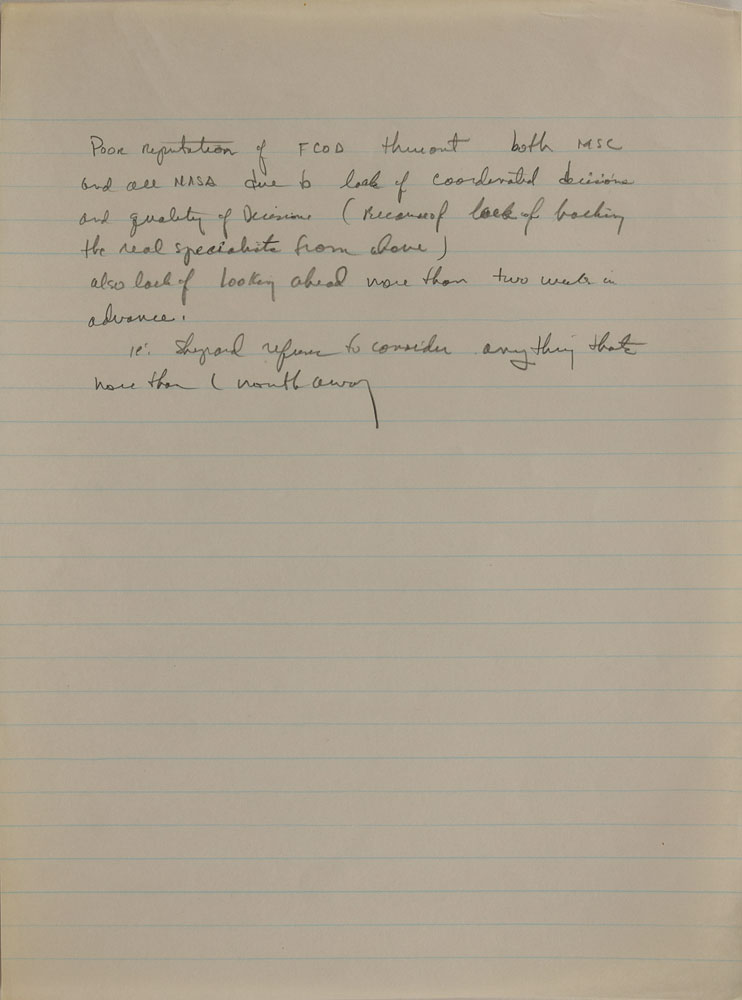 Poor reputation of FCOD thruout both MSC
and all NASA due to lack of coordinated decisions
and quality of Decisions (Because of lack of backing
the real specialists from above)
also lack of looking ahead more than two weeks in
advance.
ie: Shepard refuses to consider anything thats
more than 1 month away